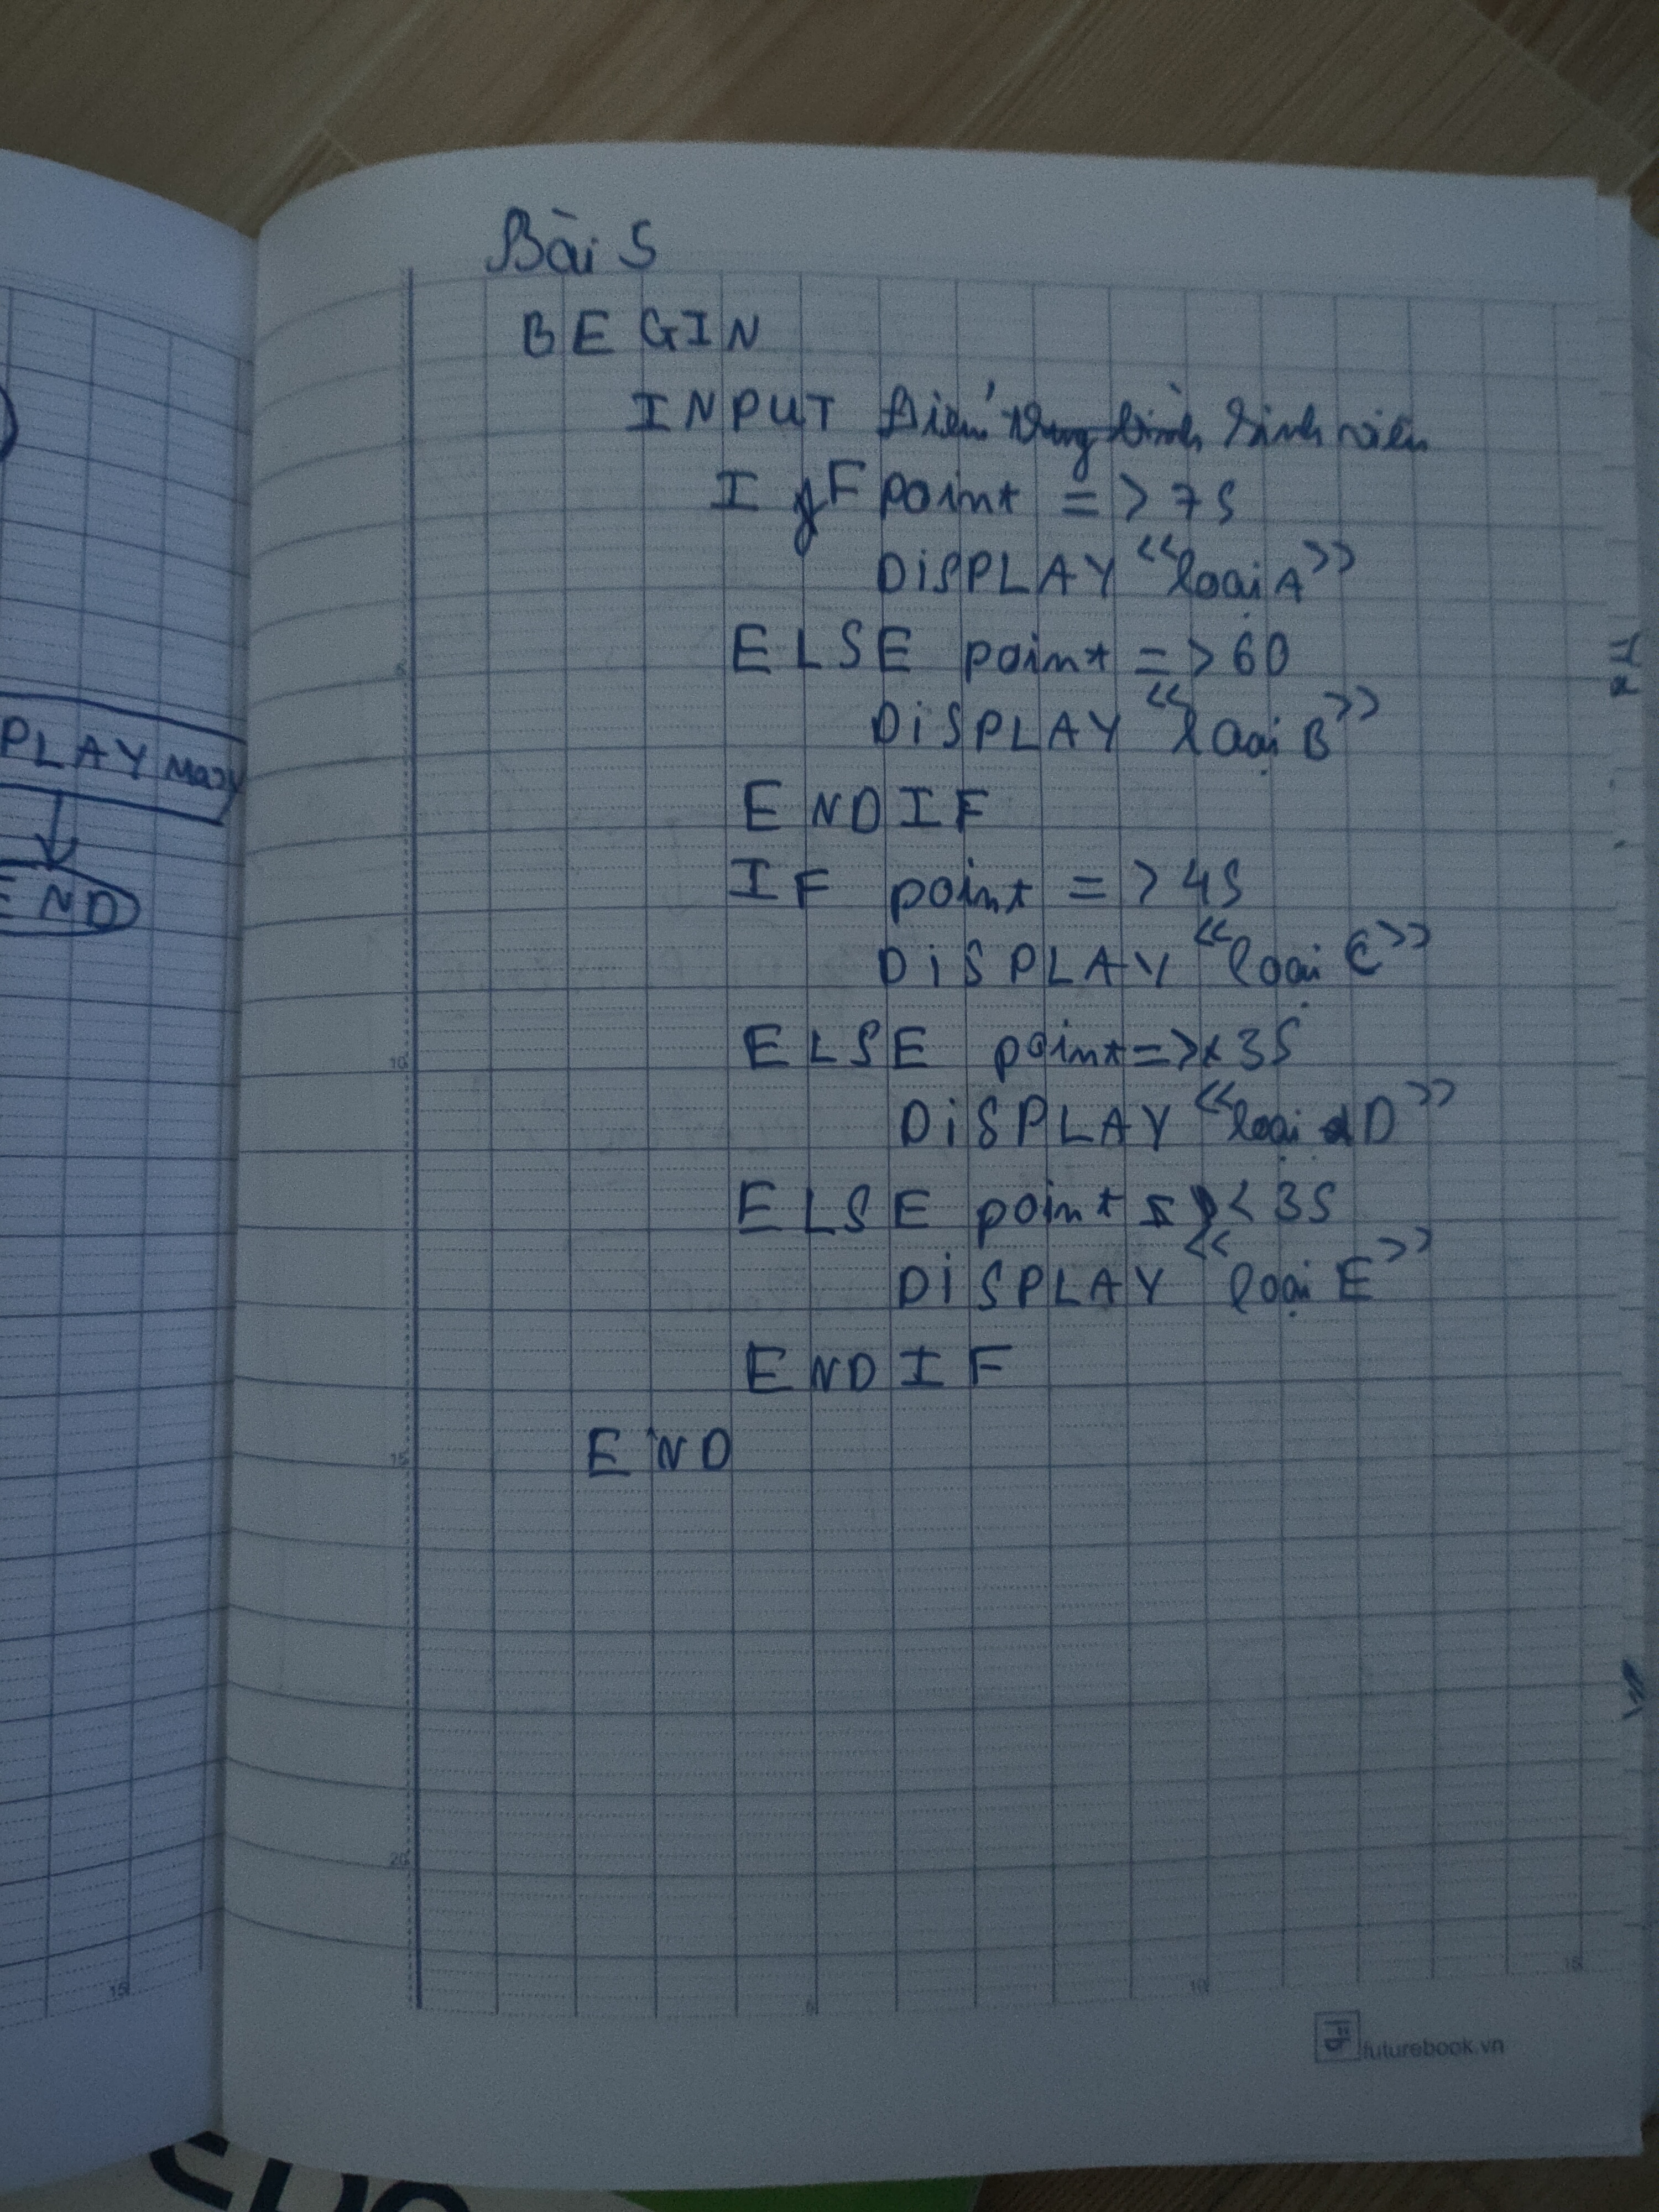 PLAY Max
END
Bài 5
BEGIN
INPUT Điểm trung bình sinh viên
IF point => 75
DiSPLAY "loại A"
ELSE point => 60
DiSPLAY "loại B"
ENDIF
IF point => 45
DiSPLAY "loại C"
ELSE point => 35
DiSPLAY "loại D"
ELSE point < 35
DiSPLAY "loại E"
ENDIF
END
5
10
15
20
15
5
10
15
futurebook.vn